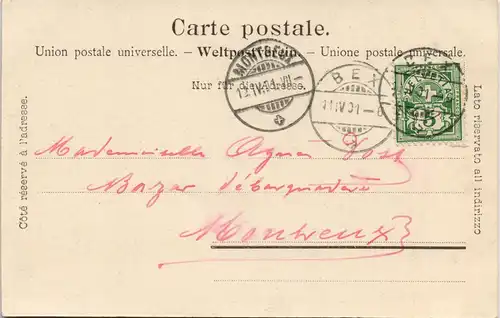 Carte postale.
Union postale universelle. – Weltpostverein. – Unione postale universale.
Nur für die Adresse.
Côté réservé à l'adresse.
Lato riservato all indirizzo
MONTREUX
12.IV.01.VII
BEX
11.IV.01–6
BEX
5
Mademoiselle Agnes
Bazar débarquadère
Montreux